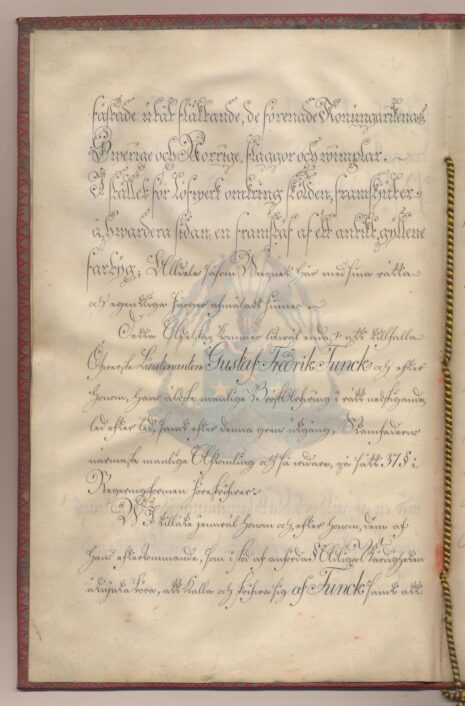 fästade utåt flaktande, de förenade Konungarikenas
Swerige och Norrige, flaggor och wimplar.
I stället för löfwerk omkring skölden, framskjuter
å hwardera sidan en framstaf af ett antikt gyllene
fartyg; Alldeles såsom Wapnet här med sina rätta
och egentliga färger afmåladt finnes.
Detta Adelskap kommer således endast att tillfalla
Öfwerste Lieutenanten Gustaf Fredrik Funck och efter
honom, hans äldste manlige Bröst-Arfwinge i rätt nedstigande
led efter led, samt efter denna grens utgång, Stamfaderns
närmaste manlige Afkomling och så widare, på sätt 37 § i
Regeringsformen föreskrifwer.
Wi tillåte jemwäl honom och efter honom, dem af
hans efterkommande, som i stöd af anförde § Adlig Wärdighet
åtnjuta böra, att kalla och skrifwa sig af Funck samt att